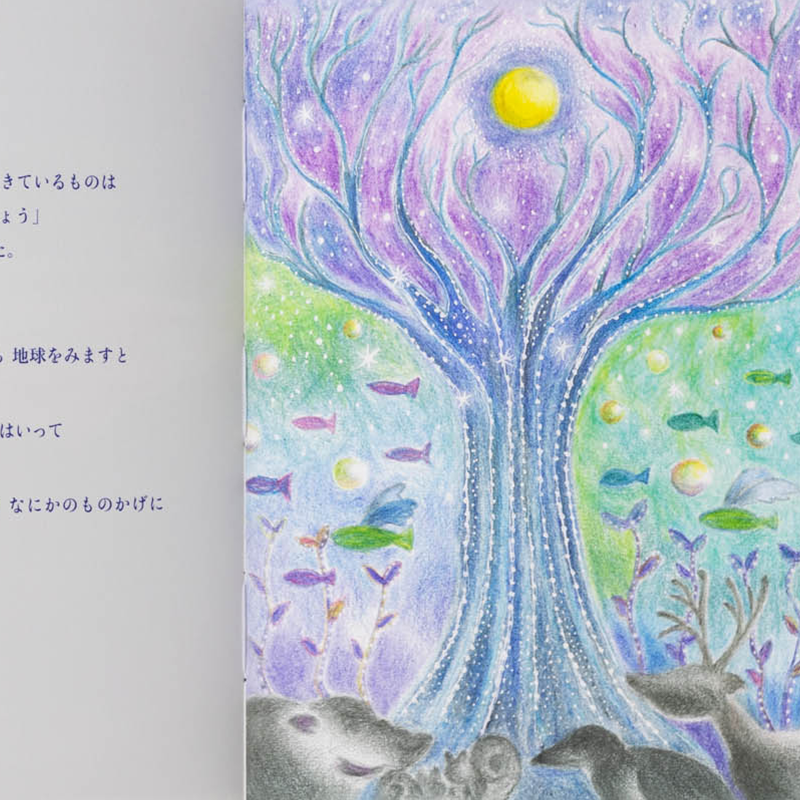 きているものは
ょう」
に。
地球をみますと
はいって
なにかのものかげに